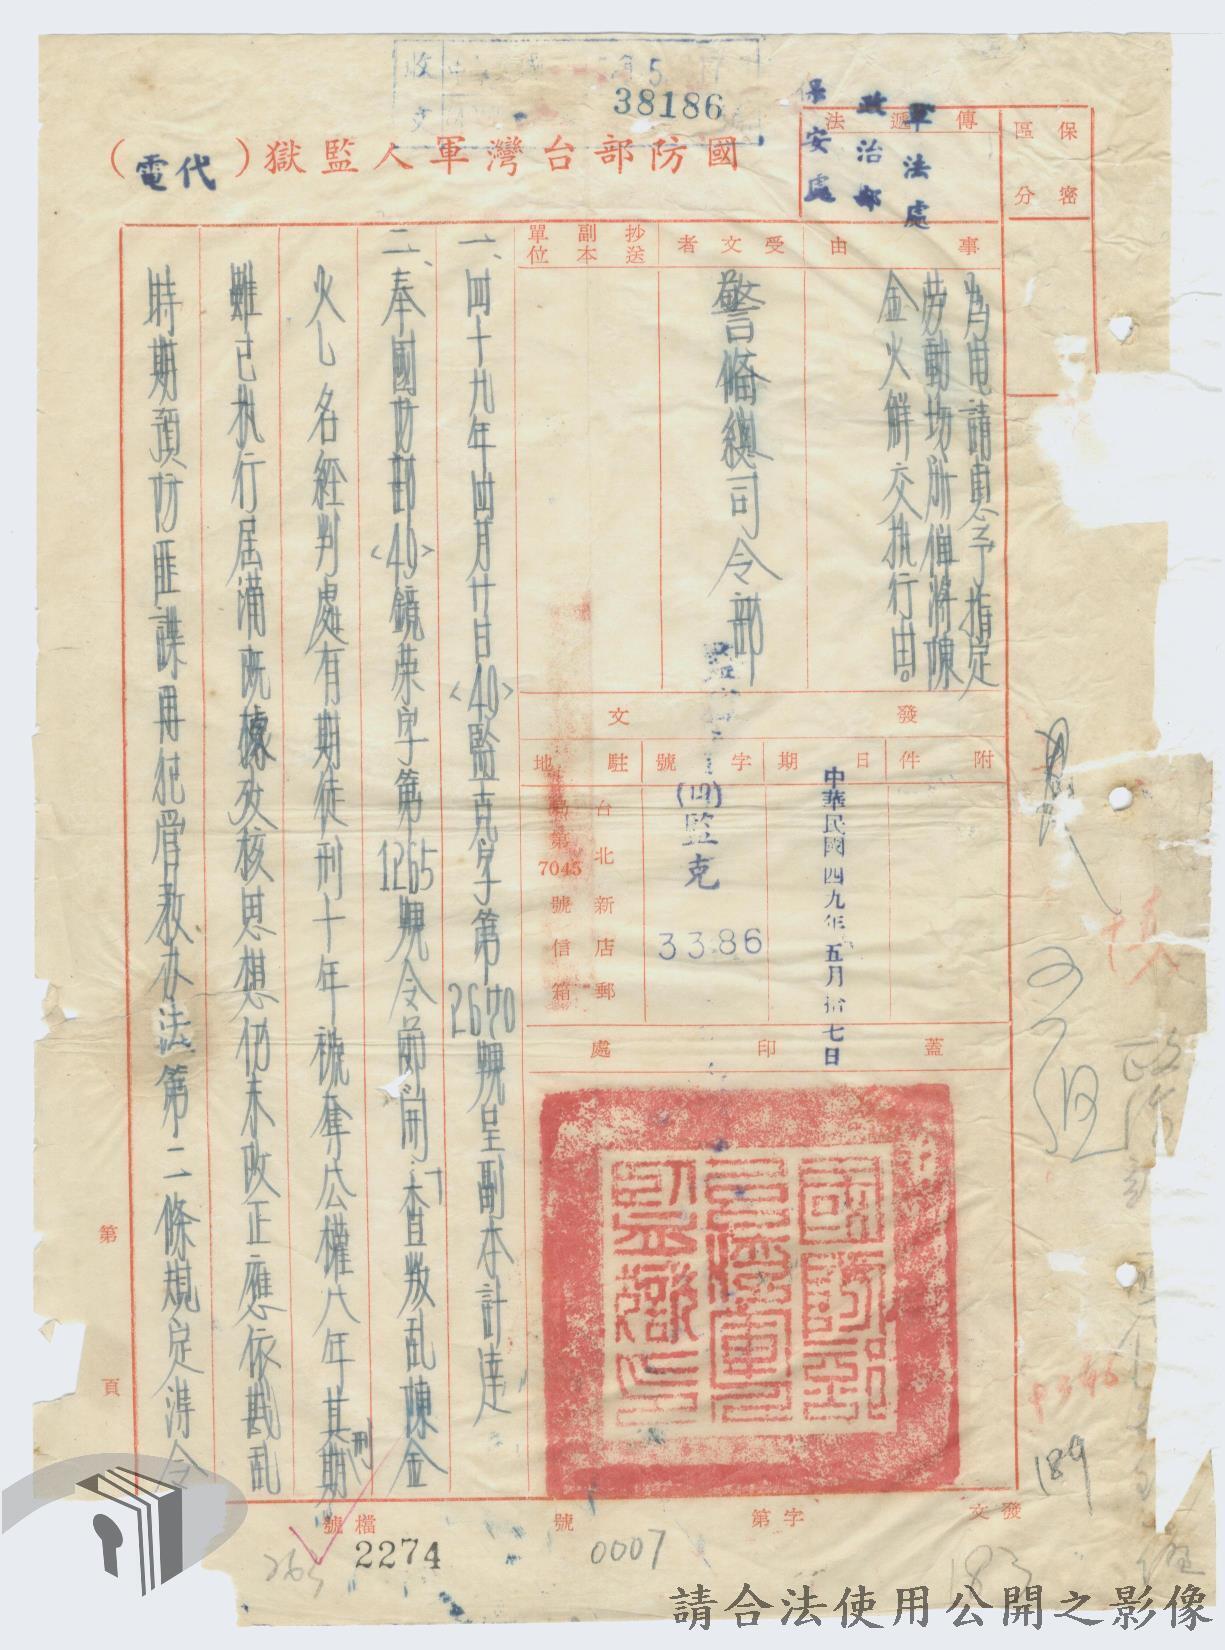 收文
38186
國防部台灣軍人監獄(代電)
保密
區分
傳遞法
軍法處
政治部
保安處
事由
為電請惠予指定
勞動場所俾將陳
金火解交執行由
受文者
警備總司令部
抄送
副本
單位
發文
附件
日期
中華民國四九年五月拾七日
字號
(四)監克
3386
駐地
台北新店郵
第
7045
號信箱
蓋印處
國防部台灣軍人監獄印
一、四十九年四月廿日<49>監克字第2670號呈副本計達
二、奉國防部<49>鏡荣字第1265號令節開:「查叛乱陳金
火乙名經判處有期徒刑十年褫奪公權八年其刑期
雖已执行屆滿既據攷核思想仍未改正應依戡乱
時期預防匪諜再犯管教办法第二條規定淂令
第 頁
發文 字第 號
檔號
2274
0007
189
183
263
請合法使用公開之影像